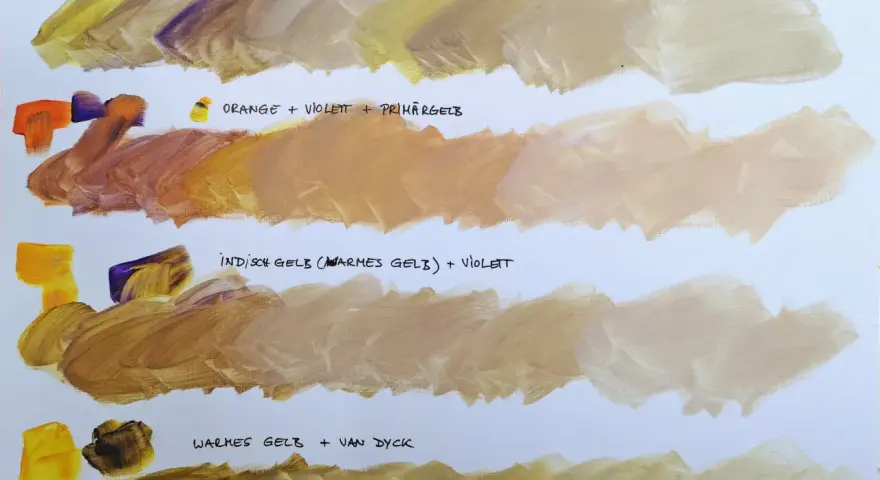 ORANGE + VIOLETT + PRIMÄRGELB
INDISCHGELB (WARMES GELB) + VIOLETT
WARMES GELB + VAN DYCK